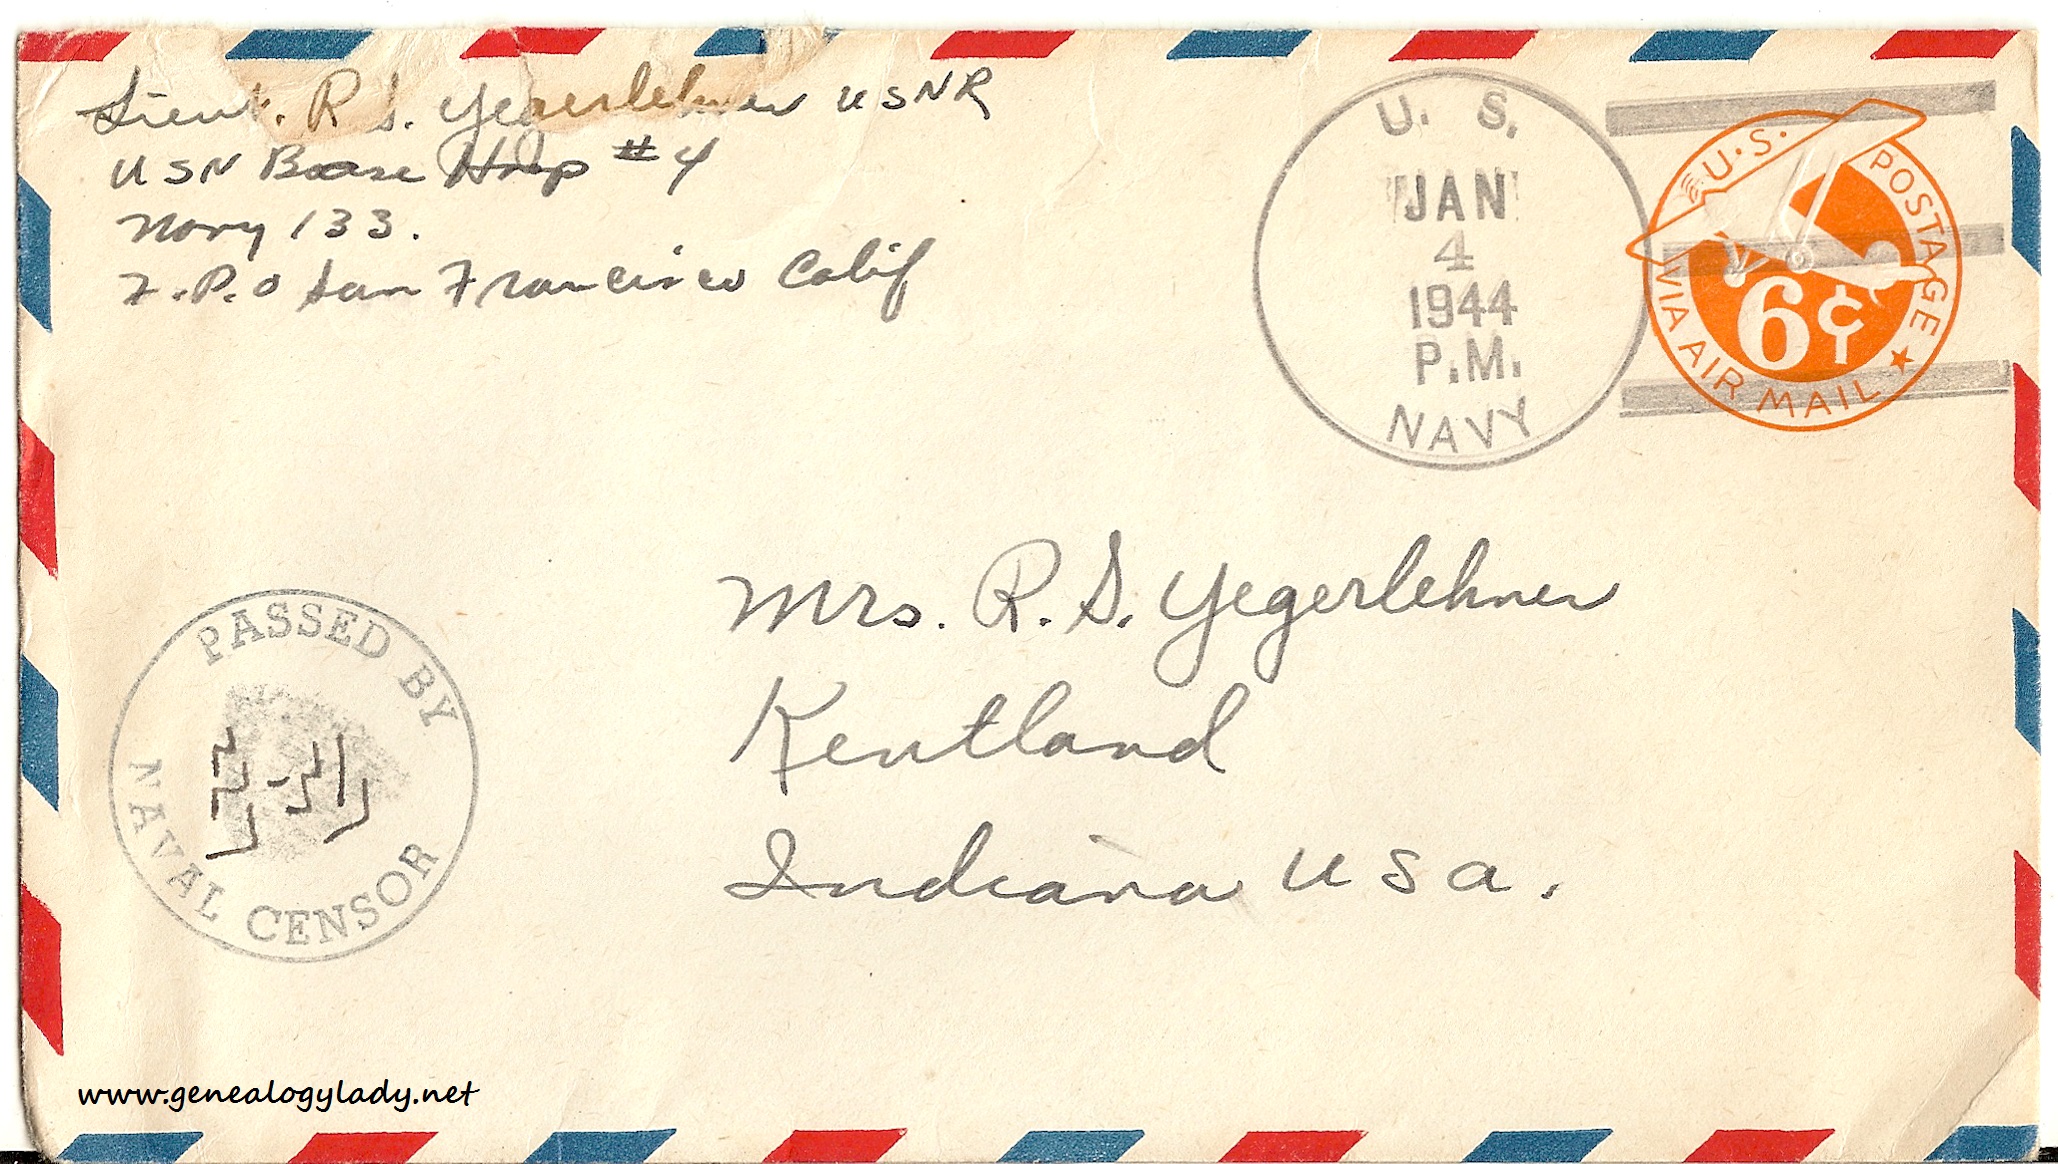 Lieut. R. S. Yegerlehner USNR
USN Base Hosp #4
Navy 133.
F.P.O San Francisco Calif
U. S.
JAN
4
1944
P.M.
NAVY
U.S. POSTAGE
6¢
VIA AIR MAIL
Mrs. R. S. Yegerlehner
Kentland
Indiana USA.
PASSED BY
NAVAL CENSOR
www.genealogylady.net